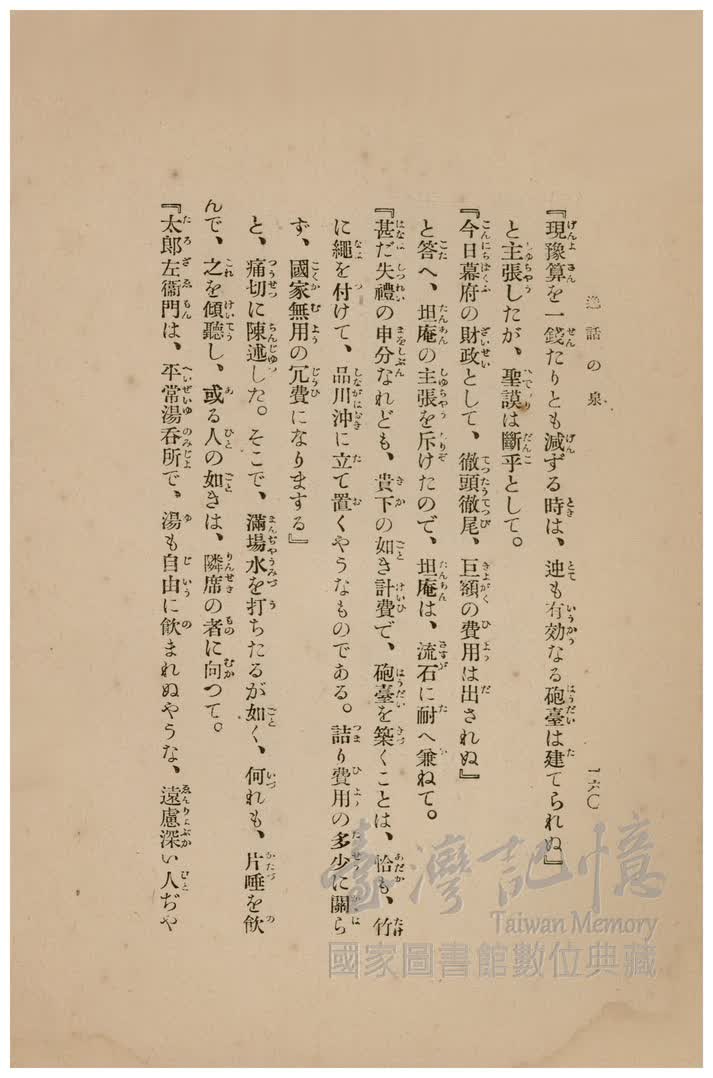 逸話の泉
一六〇
『現豫算を一錢たりとも減ずる時は、迚も有効なる砲臺は建てられぬ』
と主張したが、聖謨は斷乎として。
『今日幕府の財政として、徹頭徹尾、巨額の費用は出されぬ』
と答へ、坦庵の主張を斥けたので、坦庵は、流石に耐へ兼ねて。
『甚だ失禮の申分なれども、貴下の如き計費で、砲臺を築くことは、恰も、竹
に繩を付けて、品川沖に立て置くやうなものである。詰り費用の多少に關ら
ず、國家無用の冗費になりまする』
と、痛切に陳述した。そこで、滿場水を打ちたるが如く、何れも、片唾を飮
んで、之を傾聽し、或る人の如きは、隣席の者に向つて。
『太郎左衞門は、平常湯呑所で、湯も自由に飮まれぬやうな、遠慮深い人ぢや
臺灣記憶
Taiwan Memory
國家圖書館數位典藏